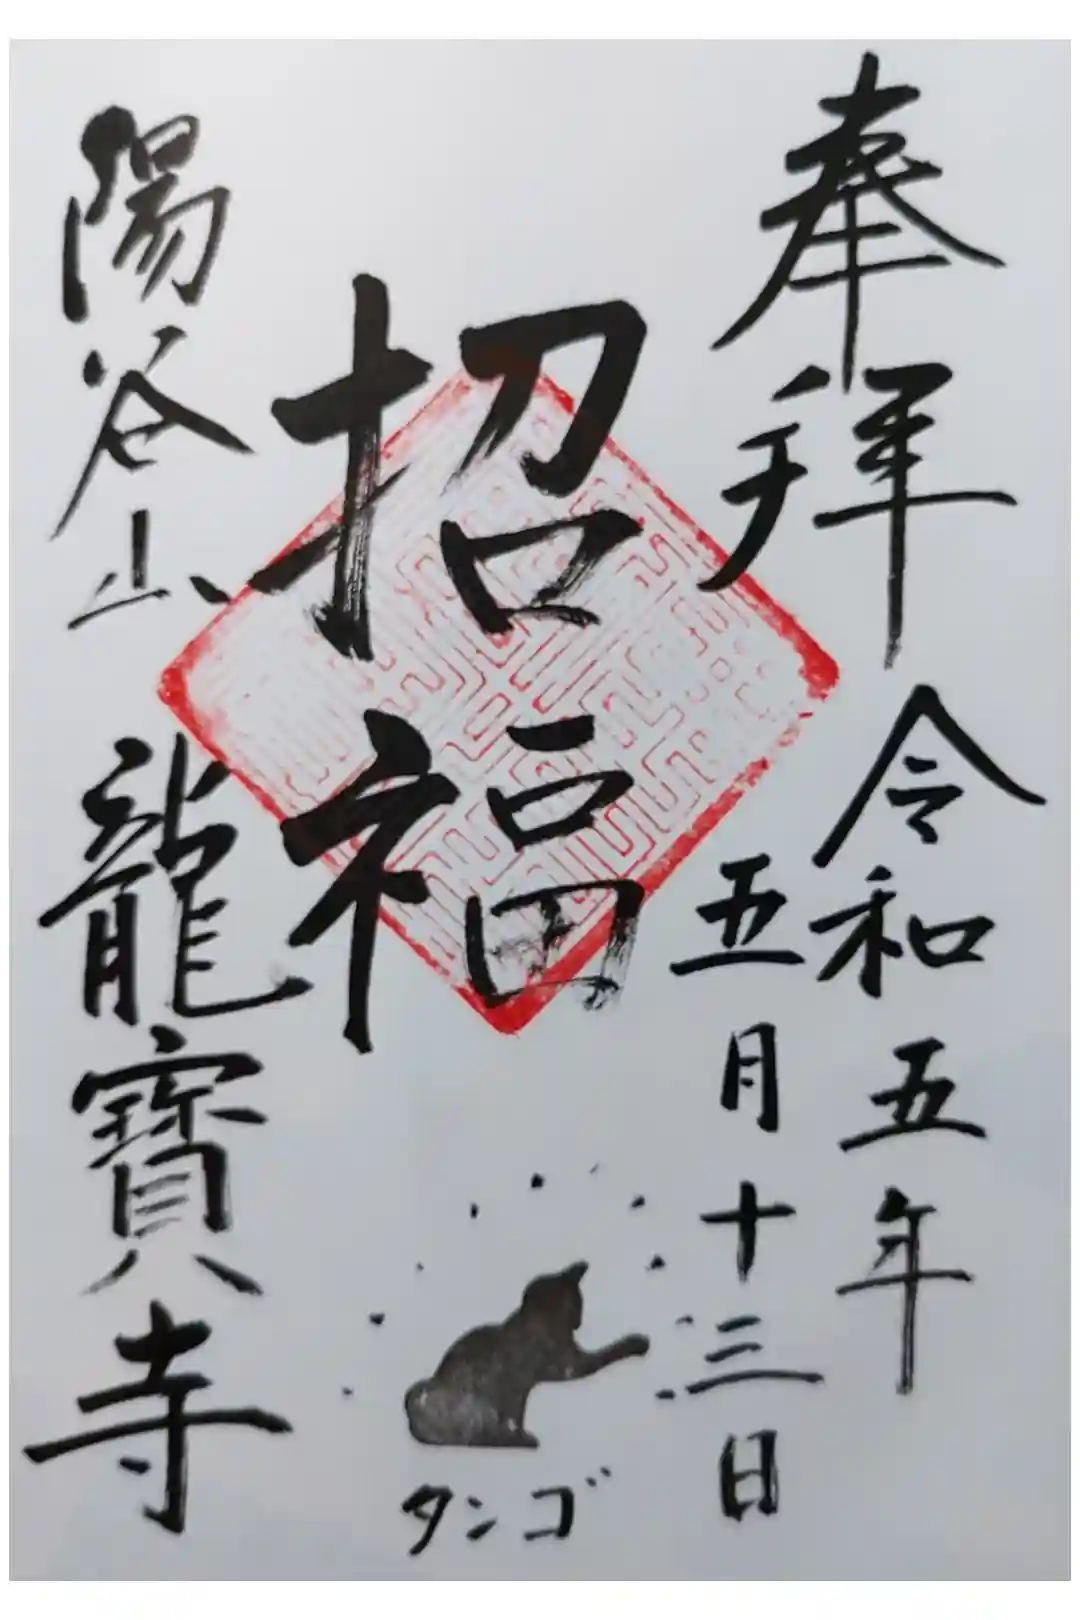 奉拜
令和五年
五月十三日
招福
タンゴ
陽谷山
龍寶寺